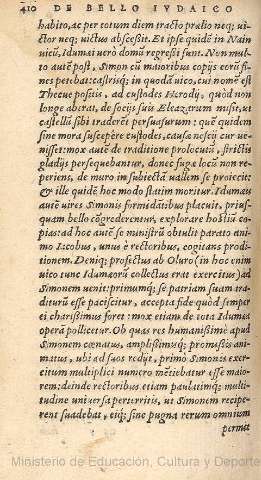 410 DE BELLO IVDAICO
habito, ac per totum diem tracto prælio neq; ui-
ctor neq; uictus abscessit. Et ipse quidē in Nain
uicū, Idumæi uerò domū regressi sunt. Non mul-
to autē pòst, Simon cū maioribus copijs eorū fi-
nes petebat: castrisq; in quodā uico, cui nomē est
Thecue positis, ad custodes Herodij, quod non
longe aberat, de socijs suis Eleazarum misit, ut
castellū sibi traderēt persuasurum: quē quidem
sine mora suscepere custodes, causæ nescij cur ue-
nisset: mox autē de traditione prolocutū, strictis
gladijs persequebantur, donec fugæ locū non re-
periens, de muro in subiectā uallem se proiecit:
& ille quidē hoc modo statim moritur. Idumæi
autē uires Simonis formidātibus placuit, prius-
quam bello cōgrederentur, explorare hostiū co-
pias: ad hoc autē se ministrū obtulit parato ani-
mo Iacobus, unus è rectoribus, cogitans prodi-
tionem. Deniq; profectus ab Oluro (in hoc enim
uico tunc Idumæorū collectus erat exercitus) ad
Simonem uenit: primumq; se patriam suam tra-
diturū esse paciscitur, accepta fide quòd semper
ei charissimus foret: mox etiam de tota Idumæa
operā pollicetur. Ob quas res humanißimè apud
Simonem cœnatus, amplißimisq; promißis ani-
matus, ubi ad suos redijt, primò Simonis exer-
citum multiplici numero mētiebatur esse maio-
rem: deinde rectoribus etiam paulatimq; multi-
tudine uniuersa perterritis, ut Simonem recipe-
rent suadebat, eiq; sine pugna rerum omnium
permit
Ministerio de Educación, Cultura y Deporte